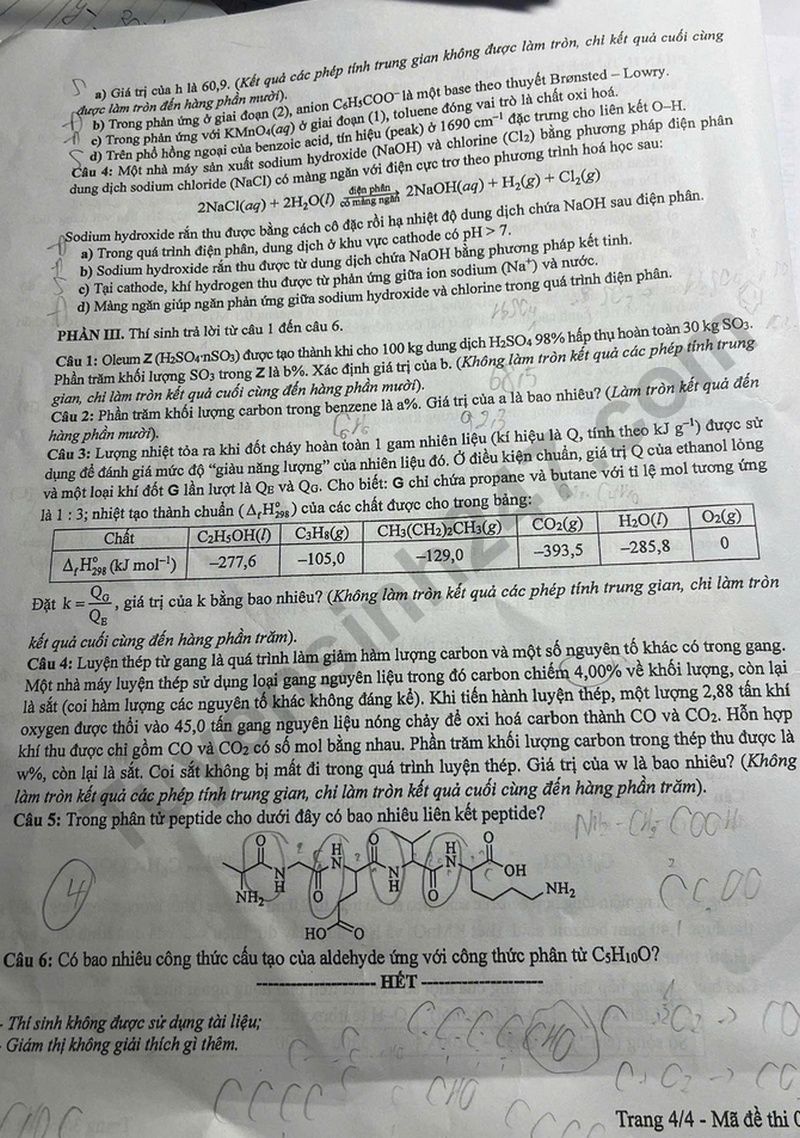 a) Giá trị của h là 60,9. (Kết quả các phép tính trung gian không được làm tròn, chỉ kết quả cuối cùng
được làm tròn đến hàng phần mười).
b) Trong phản ứng ở giai đoạn (2), anion C₆H₅COO⁻ là một base theo thuyết Brønsted – Lowry.
c) Trong phản ứng với KMnO₄(aq) ở giai đoạn (1), toluene đóng vai trò là chất oxi hoá.
d) Trên phổ hồng ngoại của benzoic acid, tín hiệu (peak) ở 1690 cm⁻¹ đặc trưng cho liên kết O–H.
Câu 4: Một nhà máy sản xuất sodium hydroxide (NaOH) và chlorine (Cl₂) bằng phương pháp điện phân
dung dịch sodium chloride (NaCl) có màng ngăn với điện cực trơ theo phương trình hoá học sau:
2NaCl(aq) + 2H₂O(l) điện phân có màng ngăn → 2NaOH(aq) + H₂(g) + Cl₂(g)
Sodium hydroxide rắn thu được bằng cách cô đặc rồi hạ nhiệt độ dung dịch chứa NaOH sau điện phân.
a) Trong quá trình điện phân, dung dịch ở khu vực cathode có pH > 7.
b) Sodium hydroxide rắn thu được từ dung dịch chứa NaOH bằng phương pháp kết tinh.
c) Tại cathode, khí hydrogen thu được từ phản ứng giữa ion sodium (Na⁺) và nước.
d) Màng ngăn giúp ngăn phản ứng giữa sodium hydroxide và chlorine trong quá trình điện phân.
H₂SO₄
PHẦN III. Thí sinh trả lời từ câu 1 đến câu 6.
Câu 1: Oleum Z (H₂SO₄·nSO₃) được tạo thành khi cho 100 kg dung dịch H₂SO₄ 98% hấp thụ hoàn toàn 30 kg SO₃.
Phần trăm khối lượng SO₃ trong Z là b%. Xác định giá trị của b. (Không làm tròn kết quả các phép tính trung
gian, chỉ làm tròn kết quả cuối cùng đến hàng phần mười).
Câu 2: Phần trăm khối lượng carbon trong benzene là a%. Giá trị của a là bao nhiêu? (Làm tròn kết quả đến
hàng phần mười).
C₆H₆
Câu 3: Lượng nhiệt tỏa ra khi đốt cháy hoàn toàn 1 gam nhiên liệu (kí hiệu là Q, tính theo kJ g⁻¹) được sử
dụng để đánh giá mức độ “giàu năng lượng” của nhiên liệu đó. Ở điều kiện chuẩn, giá trị Q của ethanol lỏng
và một loại khí đốt G lần lượt là Q_E và Q_G. Cho biết: G chỉ chứa propane và butane với tỉ lệ mol tương ứng
là 1 : 3; nhiệt tạo thành chuẩn (Δ_fH°₂₉₈) của các chất được cho trong bảng:
Chất C₂H₅OH(l) C₃H₈(g) CH₃(CH₂)₂CH₃(g) CO₂(g) H₂O(l) O₂(g)
Δ_fH°₂₉₈ (kJ mol⁻¹) –277,6 –105,0 –129,0 –393,5 –285,8 0
Đặt k = Q_G/Q_E, giá trị của k bằng bao nhiêu? (Không làm tròn kết quả các phép tính trung gian, chỉ làm tròn
kết quả cuối cùng đến hàng phần trăm).
Câu 4: Luyện thép từ gang là quá trình làm giảm hàm lượng carbon và một số nguyên tố khác có trong gang.
Một nhà máy luyện thép sử dụng loại gang nguyên liệu trong đó carbon chiếm 4,00% về khối lượng, còn lại
là sắt (coi hàm lượng các nguyên tố khác không đáng kể). Khi tiến hành luyện thép, một lượng 2,88 tấn khí
oxygen được thổi vào 45,0 tấn gang nguyên liệu nóng chảy để oxi hoá carbon thành CO và CO₂. Hỗn hợp
khí thu được chỉ gồm CO và CO₂ có số mol bằng nhau. Phần trăm khối lượng carbon trong thép thu được là
w%, còn lại là sắt. Coi sắt không bị mất đi trong quá trình luyện thép. Giá trị của w là bao nhiêu? (Không
làm tròn kết quả các phép tính trung gian, chỉ làm tròn kết quả cuối cùng đến hàng phần trăm).
Câu 5: Trong phân tử peptide cho dưới đây có bao nhiêu liên kết peptide?
NH₂ - CH₂ - COOH
O H N O H N O
OH
NH₂ N H O N H O NH₂
4
HO O
Câu 6: Có bao nhiêu công thức cấu tạo của aldehyde ứng với công thức phân tử C₅H₁₀O?
HẾT
- Thí sinh không được sử dụng tài liệu;
- Giám thị không giải thích gì thêm.
C-C-C-C CHO
CCCC CHO
Trang 4/4 - Mã đề thi 0